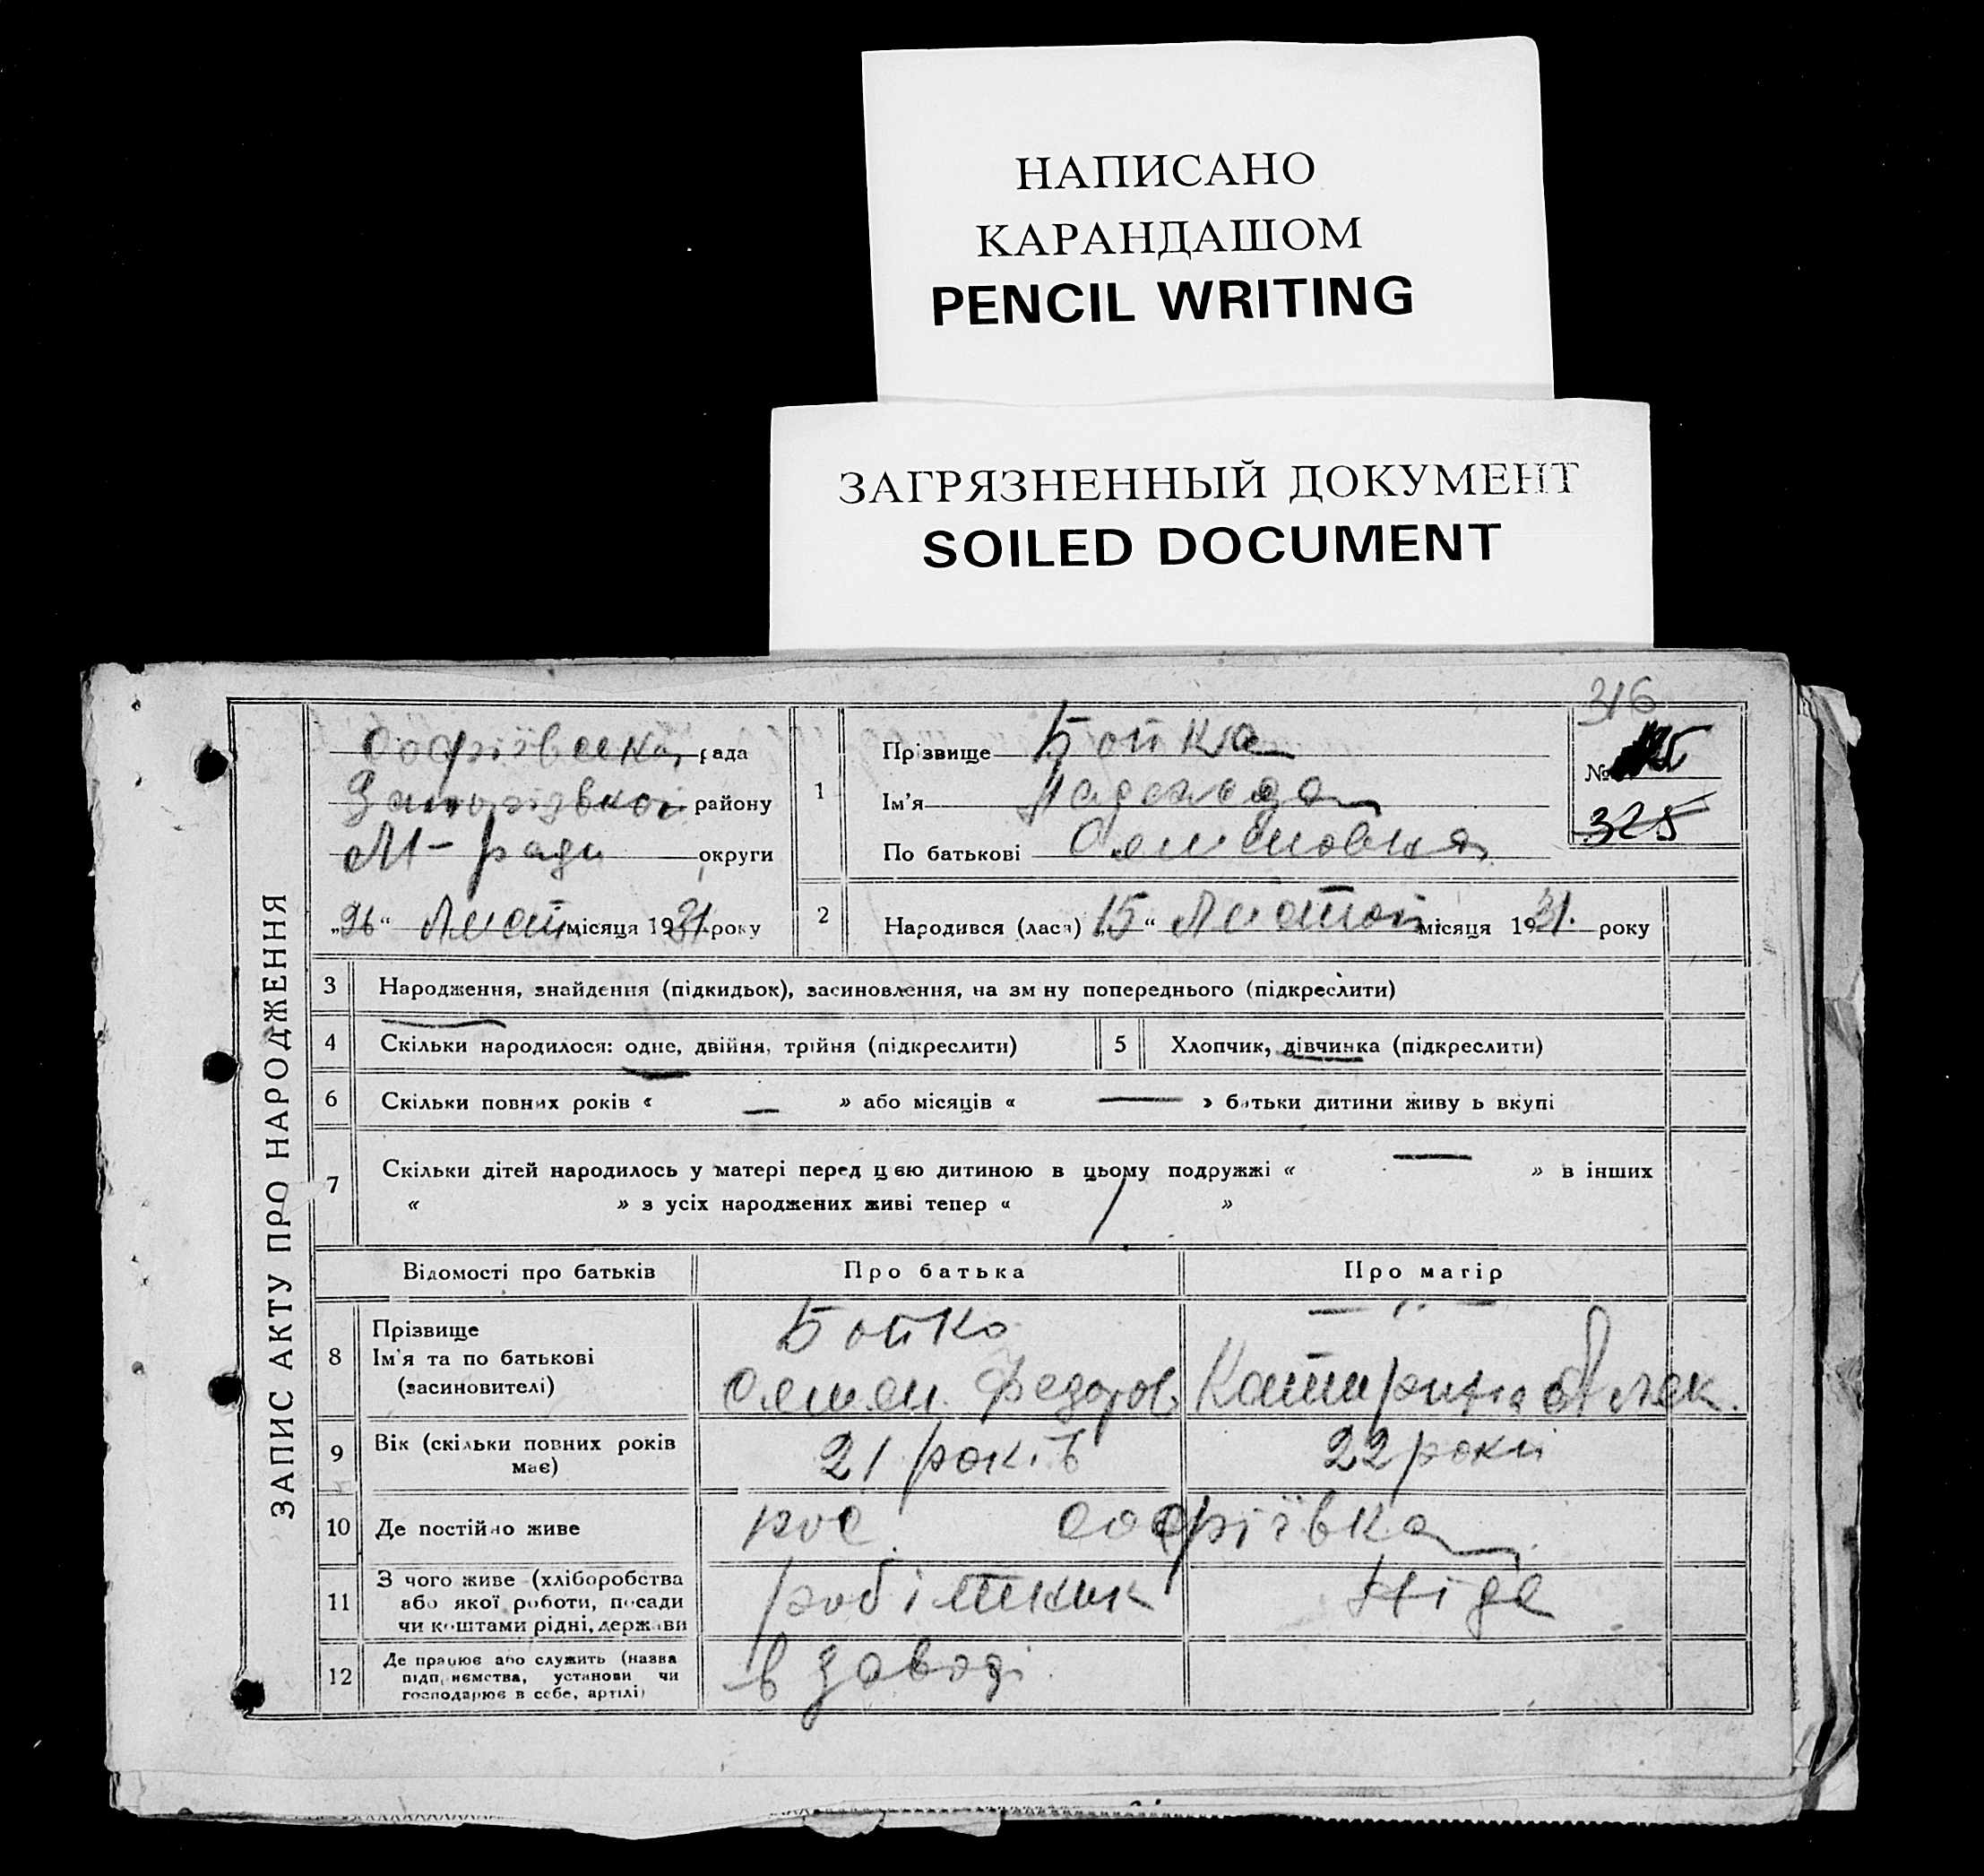 НАПИСАНО
КАРАНДАШОМ
PENCIL WRITING
ЗАГРЯЗНЕННЫЙ ДОКУМЕНТ
SOILED DOCUMENT
316
ЗАПИС АКТУ ПРО НАРОДЖЕННЯ
Софіївська рада
району
М-ради округи
"26" Лист місяця 1931 року
1
Прізвище Бойко
Ім'я Надежда
По батькові Семеновна
№
325
2 Народився (лася) "15" Листоп місяця 1931. року
3 Народження, знайдення (підкидьок), засиновлення, на зм ну попереднього (підкреслити)
4 Скільки народилося: одне, двійня, трійня (підкреслити)
5 Хлопчик, дівчинка (підкреслити)
6 Скільки повних років « — » або місяців « — » батьки дитини живу ь вкупі
7 Скільки дітей народилось у матері перед цією дитиною в цьому подружжі « — » в інших
« » з усіх народжених живі тепер « / »
Відомості про батьків Про батька Про матір
8 Прізвище
Ім'я та по батькові
(засиновителі)
Бойко
Семен Федоров.
— " —
Катирина Олек.
9 Вік (скільки повних років
має)
21 років 22 роки
10 Де постійно живе рос. Софіївка
11 З чого живе (хліборобства
або якої роботи, посади
чи коштами рідні, держави
робітник
12 Де працює або служить (назва
підприємства, установи чи
господарює в себе, артілі)
в заводі